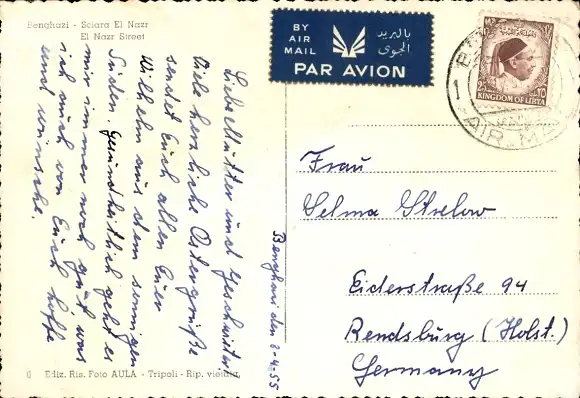 Benghazi - Sciara El Nazr
El Nazr Street
BY
AIR
MAIL
بالبريد
الجوى
PAR AVION
KINGDOM OF LIBYA
AIR MAIL
Benghasi den 8-4-55
Liebe Mutter und Geschwister
Viele herzliche Ostergrüße
sendet Euch allen Euer
Wilhelm aus dem sonnigen
Süden. Gesundheitlich geht es
mir immer noch gut was
ich auch von Euch hoffe
und wünsche.
Frau
Selma Strelow
Eiderstraße 94
Rendsburg (Holst.)
Germany
6 Ediz. Ris. Foto AULA - Tripoli - Rip. vietata